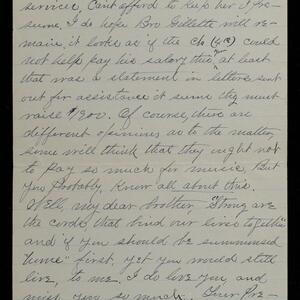 service, Can't afford to keep her I pre-
sume, I do hope Bro Gillette will re-
main, it looks as if the ch could
not help pay his salary this yr at least
that was a statement in letters sent
out for assistance it seems they must
raise $1200. Of course, there are
different opinions as to the matter,
some will think that they ought not
to pay so much for music, But
you probably, know all about this.
Well, my dear brother, "Strong are
the cords, that bind our lives together"
and if you should be summoned
"home" first, yet you would still
live, to me, I do love you and
miss you so much. Your Pre-